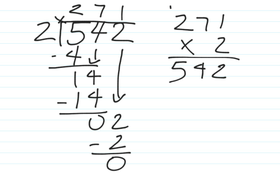 271
2)542
-4
14
-14
02
-2
0
271
x 2
542